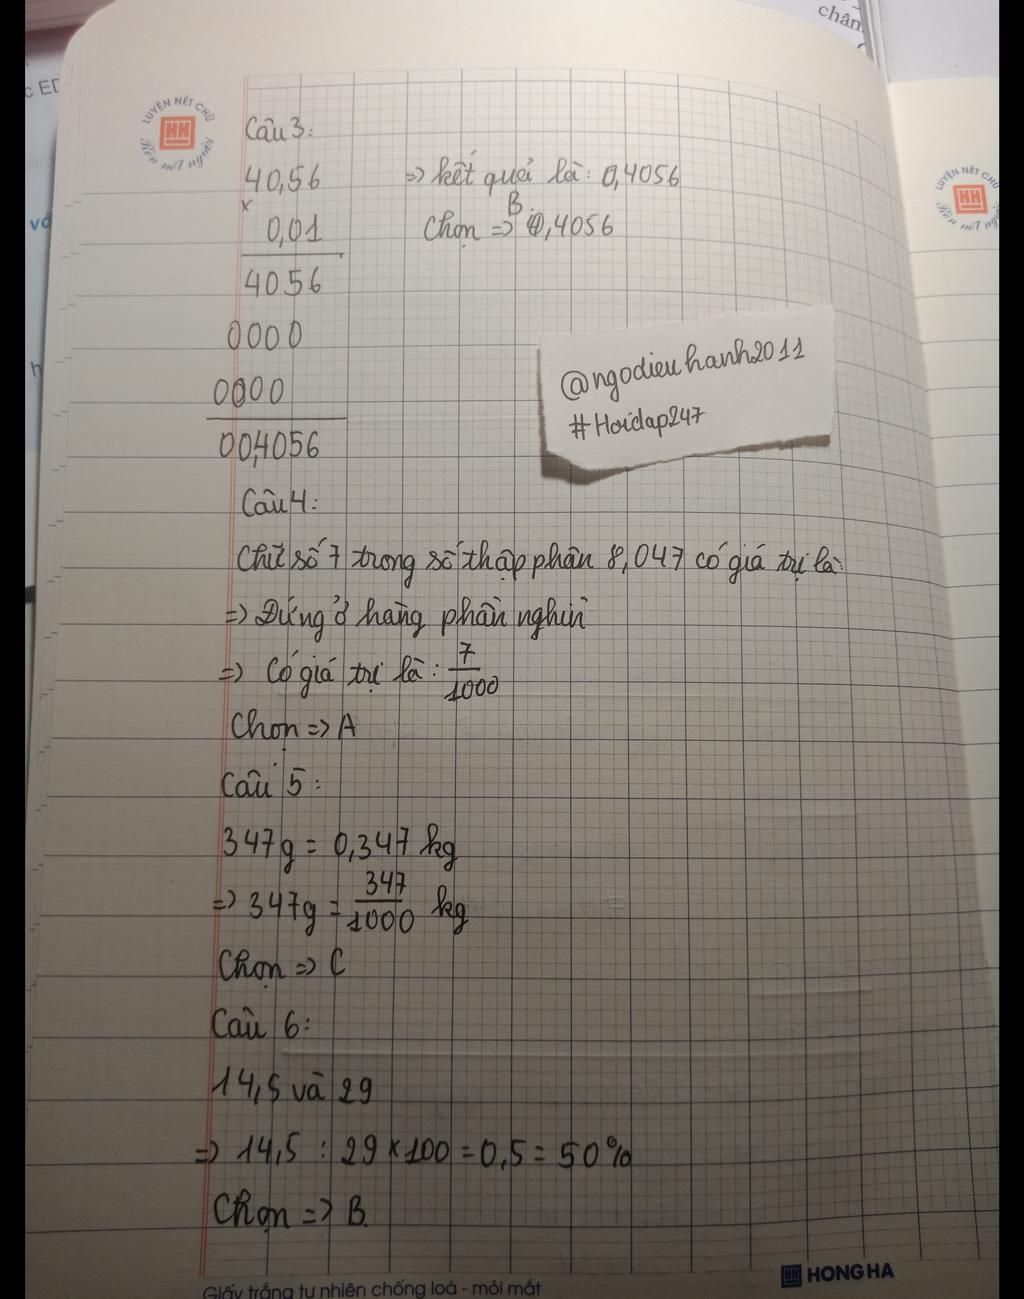 chân
c ED
LUYỆN NÉT CHỮ
Rèn nết người
HH
Câu 3:
40,56
x
0,01
4056
0000
0000
00,4056
=> kết quả là: 0,4056
B.
Chọn => 0,4056
@ngodieuhanh2011
#Hoidap247
LUYỆN NÉT CH
Rèn nết ng
HH
vớ
h
Câu 4:
Chữ số 7 trong số thập phân 8,047 có giá trị là:
=> Đứng ở hàng phần nghìn
=> Có giá trị là: 7/1000
Chọn => A
Câu 5:
347g = 0,347 kg
=> 347g = 347/1000 kg
Chọn => C
Câu 6:
14,5 và 29
=> 14,5 : 29 x 100 = 0,5 = 50%
Chọn => B.
Giấy trắng tự nhiên chống loá - mỏi mắt
HH HONG HA